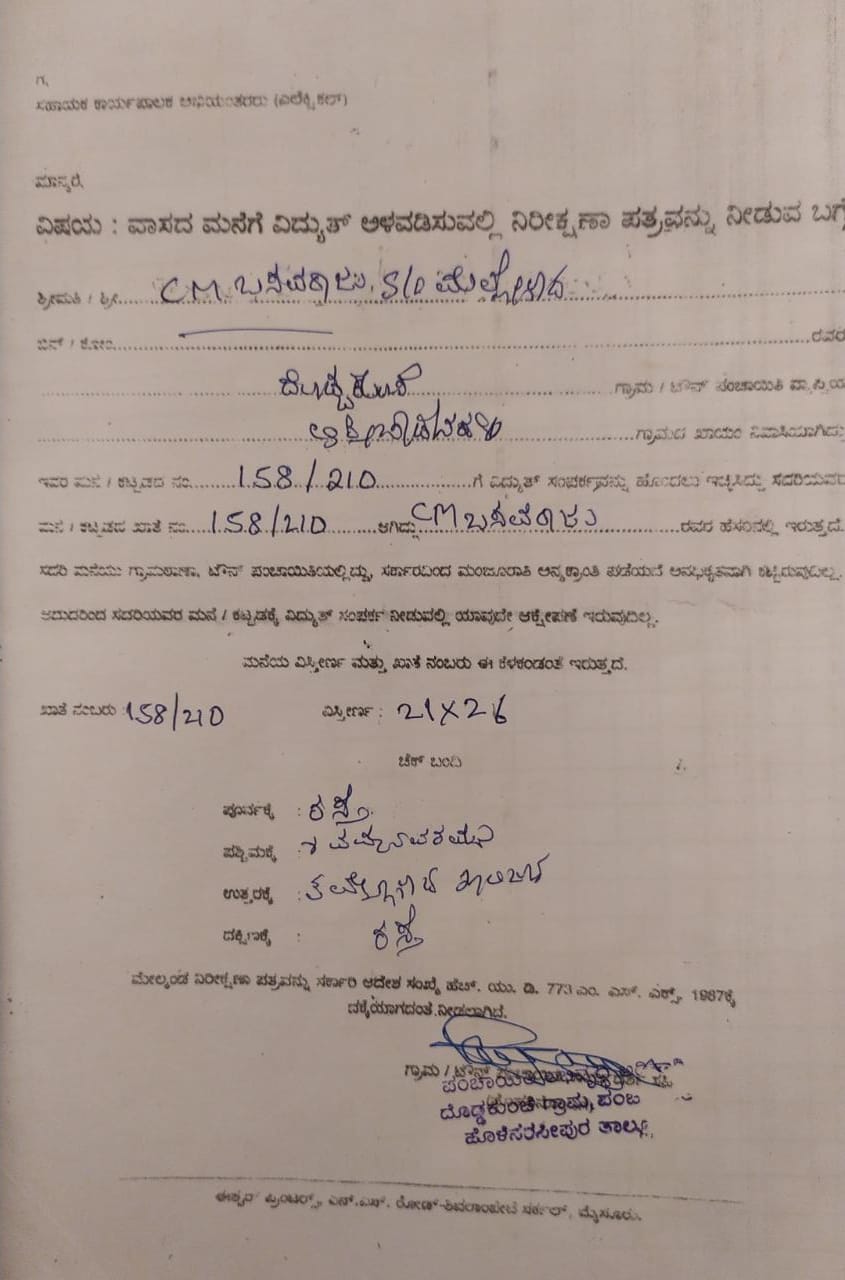 ಗೆ,
ಸಹಾಯಕ ಕಾರ್ಯಪಾಲಕ ಅಭಿಯಂತರರು (ಎಲೆಕ್ಟ್ರಿಕಲ್)
ಮಾನ್ಯರೆ,
ವಿಷಯ : ವಾಸದ ಮನೆಗೆ ವಿದ್ಯುತ್ ಅಳವಡಿಸುವಲ್ಲಿ ನಿರೀಕ್ಷಣಾ ಪತ್ರವನ್ನು ನೀಡುವ ಬಗ್ಗೆ
ಶ್ರೀಮತಿ / ಶ್ರೀ..... CM ಬಸವರಾಜು. S/o
ಬಿನ್ / ಕೋಂ..... ರವರ
ಗ್ರಾಮ / ಟೌನ್ ಪಂಚಾಯಿತಿ ವ್ಯಾಪ್ತಿಯ
ಗ್ರಾಮದ ಖಾಯಂ ನಿವಾಸಿಯಾಗಿದ್ದು
ಇವರ ಮನೆ / ಕಟ್ಟಡದ ನಂ..... 158/210 .....ಗೆ ವಿದ್ಯುತ್ ಸಂಪರ್ಕವನ್ನು ಹೊಂದಲು ಇಚ್ಛಿಸಿದ್ದು ಸದರಿಯವರ
ಮನೆ / ಕಟ್ಟಡದ ಖಾತೆ ನಂ..... 158/210 .....ಆಗಿದ್ದು CM ಬಸವರಾಜು ..... ರವರ ಹೆಸರಿನಲ್ಲಿ ಇರುತ್ತದೆ.
ಸದರಿ ಮನೆಯು ಗ್ರಾಮಠಾಣಾ, ಟೌನ್ ಪಂಚಾಯಿತಿಯಲ್ಲಿದ್ದು, ಸರ್ಕಾರದಿಂದ ಮಂಜೂರಾತಿ ಅನ್ಯಕ್ರಾಂತಿ ಪಡೆಯದೆ ಅನಧಿಕೃತವಾಗಿ ಕಟ್ಟಿರುವುದಿಲ್ಲ.
ಆದುದರಿಂದ ಸದರಿಯವರ ಮನೆ / ಕಟ್ಟಡಕ್ಕೆ ವಿದ್ಯುತ್ ಸಂಪರ್ಕ ನೀಡುವಲ್ಲಿ ಯಾವುದೇ ಆಕ್ಷೇಪಣೆ ಇರುವುದಿಲ್ಲ.
ಮನೆಯ ವಿಸ್ತೀರ್ಣ ಮತ್ತು ಖಾತೆ ನಂಬರು ಈ ಕೆಳಕಂಡಂತೆ ಇರುತ್ತದೆ.
ಖಾತೆ ನಂಬರು : 158/210 ವಿಸ್ತೀರ್ಣ : 21X26
ಚೆಕ್ ಬಂದಿ
ಪೂರ್ವಕ್ಕೆ : ರಸ್ತೆ.
ಪಶ್ಚಿಮಕ್ಕೆ :
ಉತ್ತರಕ್ಕೆ :
ದಕ್ಷಿಣಕ್ಕೆ : ರಸ್ತೆ
ಮೇಲ್ಕಂಡ ನಿರೀಕ್ಷಣಾ ಪತ್ರವನ್ನು ಸರ್ಕಾರಿ ಆದೇಶ ಸಂಖ್ಯೆ ಹೆಚ್. ಯು. ಡಿ. 773 ಎಂ. ಎಸ್. ಎಕ್ಸ್. 1987ಕ್ಕೆ
ದಕ್ಕೆಯಾಗದಂತೆ ನೀಡಲಾಗಿದೆ.
ಗ್ರಾಮ / ಟೌನ್
ದೊಡ್ಡಕುಂಚೆ ಗ್ರಾಮ
ಹೊಳೆನರಸೀಪುರ ತಾಲ್ಲೂಕು
ಈಶ್ವರ ಪ್ರಿಂಟರ್ಸ್, ಎನ್.ಎಸ್. ರೋಡ್-ಶಿವರಾಂಪೇಟೆ ಸರ್ಕಲ್, ಮೈಸೂರು.